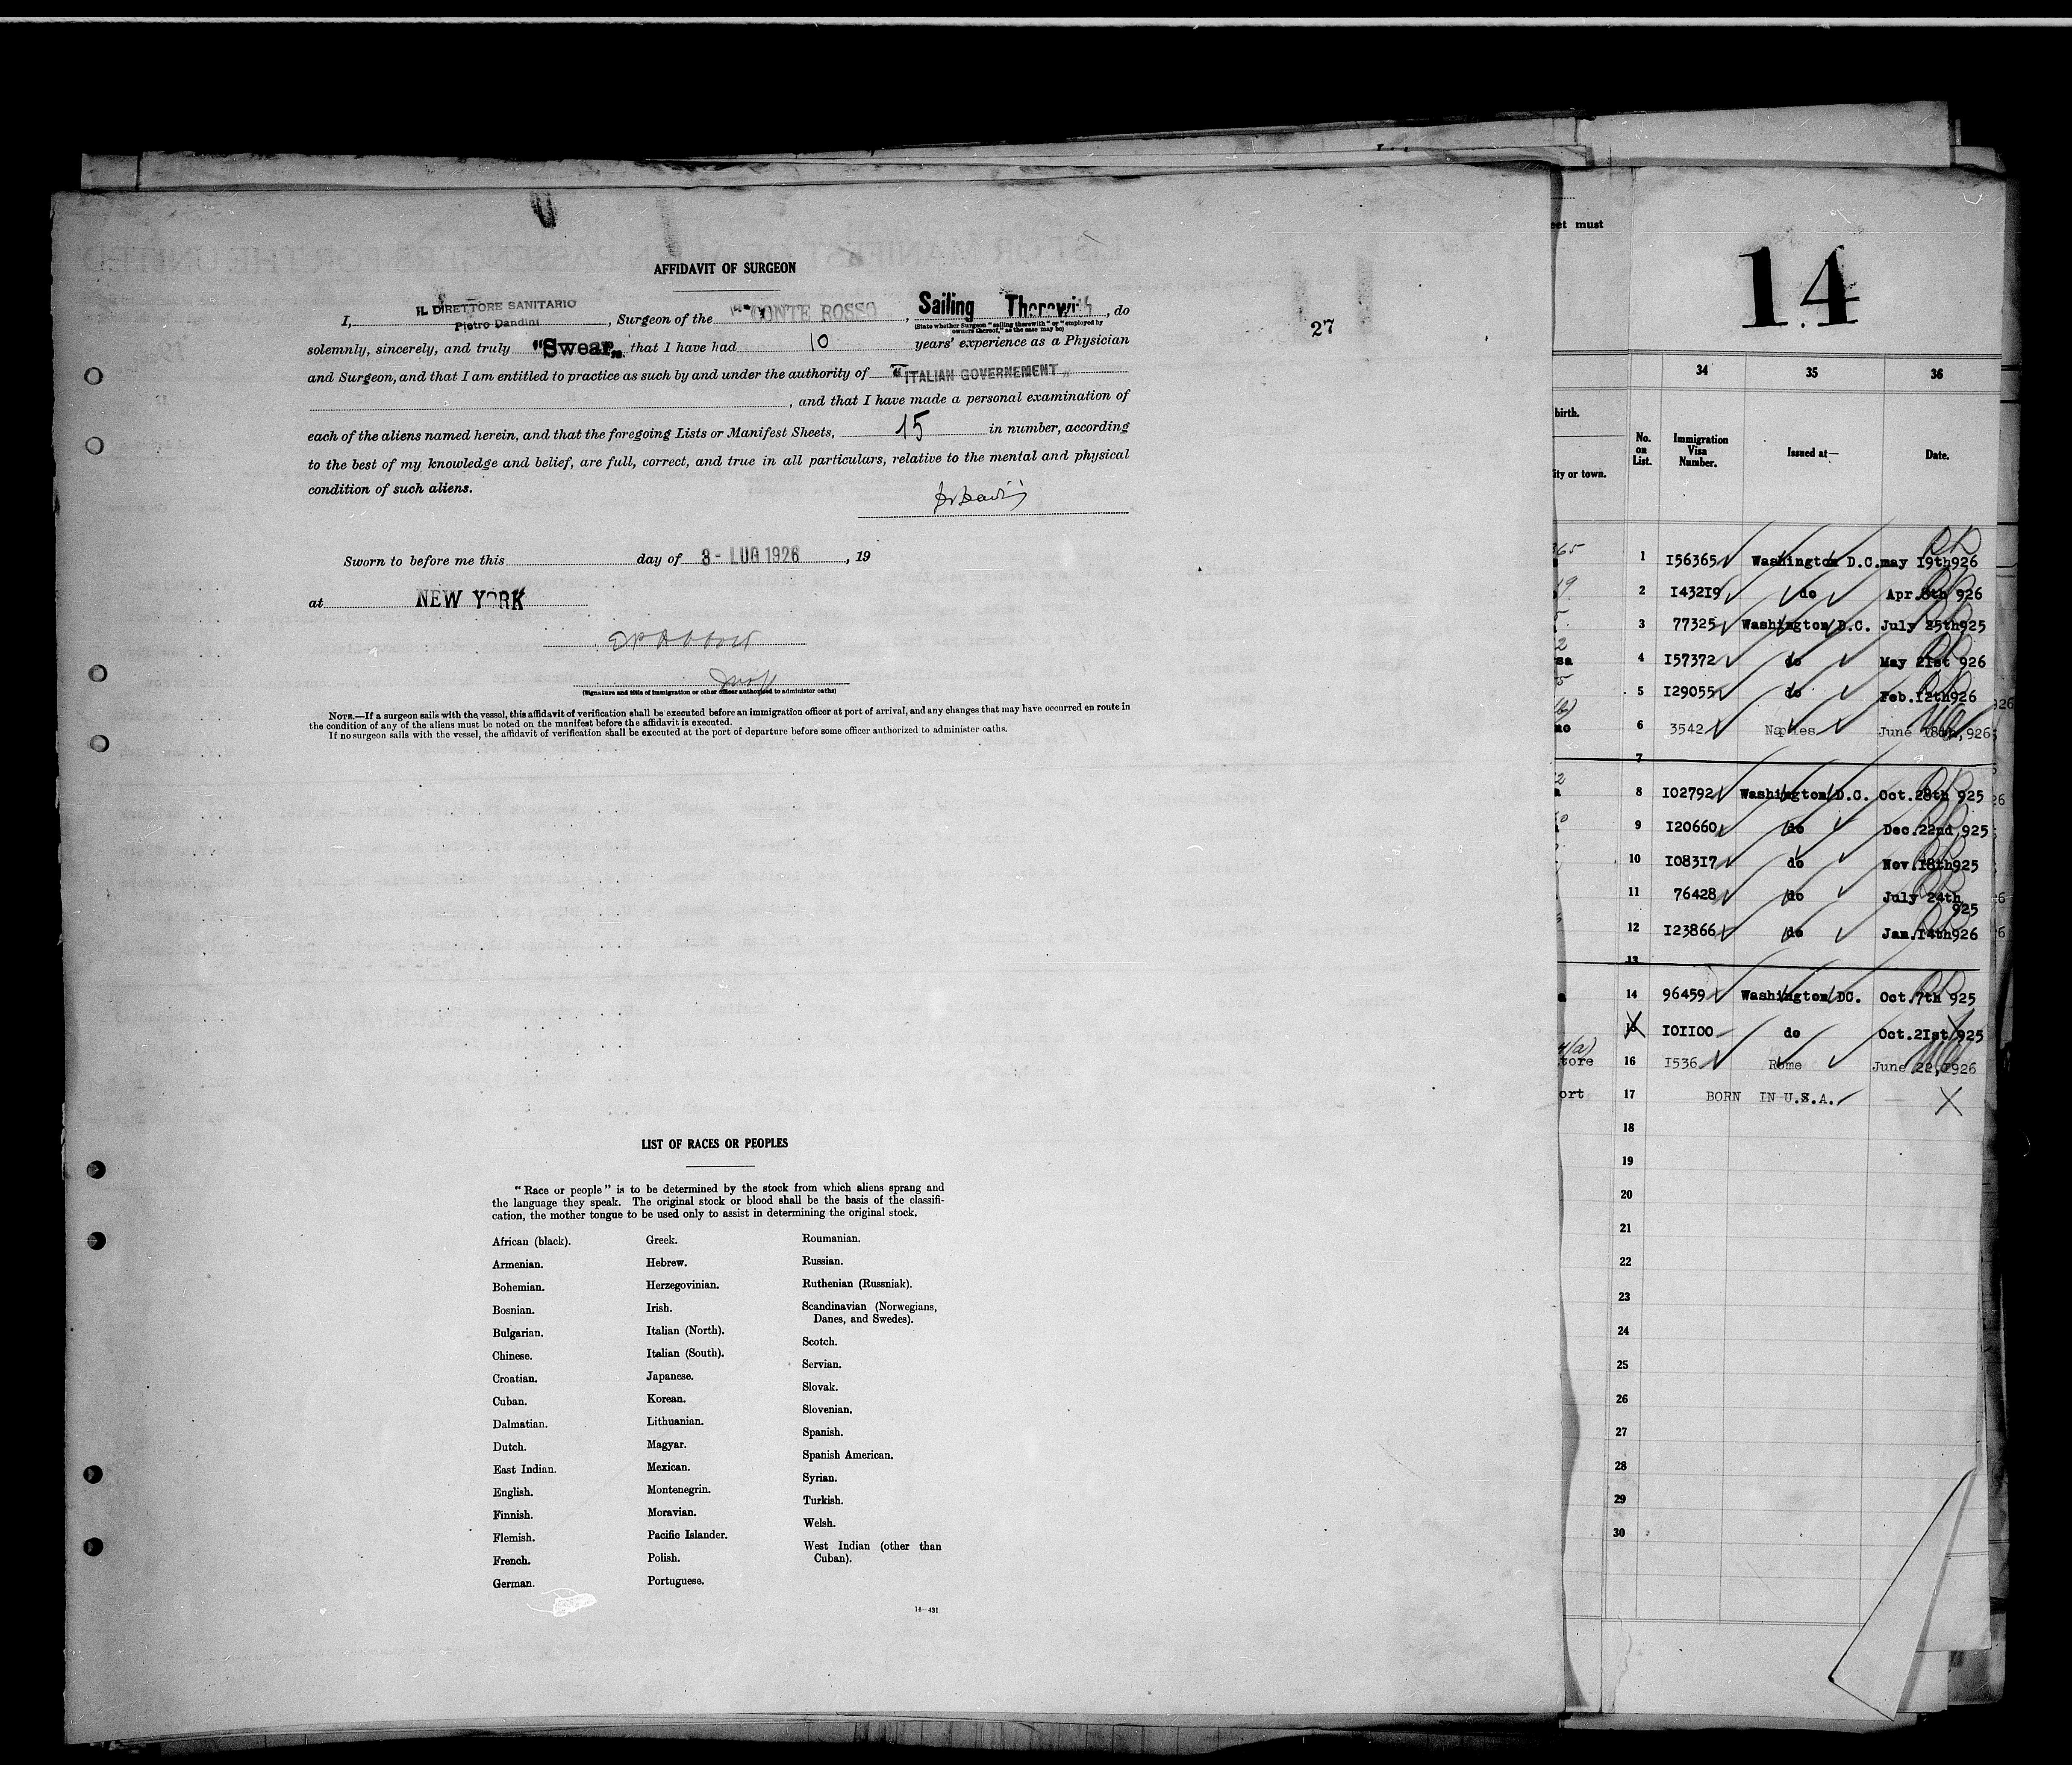 AFFIDAVIT OF SURGEON
IL DIRETTORE SANITARIO
I, Pietro Dandini, Surgeon of the "CONTE ROSSO, Sailing Therewith, do
(State whether Surgeon "sailing therewith" or "employed by
owners thereof," as the case may be)
solemnly, sincerely, and truly "Swear" that I have had 10 years' experience as a Physician
and Surgeon, and that I am entitled to practice as such by and under the authority of "ITALIAN GOVERNEMENT"
, and that I have made a personal examination of
each of the aliens named herein, and that the foregoing Lists or Manifest Sheets, 15 in number, according
to the best of my knowledge and belief, are full, correct, and true in all particulars, relative to the mental and physical
condition of such aliens.
Sworn to before me this day of 3 - LUG 1926, 19
at NEW YORK
(Signature and title of immigration or other officer authorized to administer oaths)
NOTE.—If a surgeon sails with the vessel, this affidavit of verification shall be executed before an immigration officer at port of arrival, and any changes that may have occurred en route in
the condition of any of the aliens must be noted on the manifest before the affidavit is executed.
If no surgeon sails with the vessel, the affidavit of verification shall be executed at the port of departure before some officer authorized to administer oaths.
27
LIST OF RACES OR PEOPLES
"Race or people" is to be determined by the stock from which aliens sprang and
the language they speak. The original stock or blood shall be the basis of the classifi-
cation, the mother tongue to be used only to assist in determining the original stock.
African (black).
Armenian.
Bohemian.
Bosnian.
Bulgarian.
Chinese.
Croatian.
Cuban.
Dalmatian.
Dutch.
East Indian.
English.
Finnish.
Flemish.
French.
German.
Greek.
Hebrew.
Herzegovinian.
Irish.
Italian (North).
Italian (South).
Japanese.
Korean.
Lithuanian.
Magyar.
Mexican.
Montenegrin.
Moravian.
Pacific Islander.
Polish.
Portuguese.
Roumanian.
Russian.
Ruthenian (Russniak).
Scandinavian (Norwegians,
Danes, and Swedes).
Scotch.
Servian.
Slovak.
Slovenian.
Spanish.
Spanish American.
Syrian.
Turkish.
Welsh.
West Indian (other than
Cuban).
14—431
eet must
14
34 35 36
birth.
ity or town.
No. on List. Immigration Visa Number. Issued at— Date.
1 I56365 Washington D.C. may 19th926
2 I43219 do Apr.8th 926
3 77325 Washington D.C. July 25th925
sa 4 I57372 do May 21st 926
5 I29055 do Feb.12th926
no 6 3542 Naples June 18th,926
7
8 I02792 Washington D.C. Oct.28th 925
9 I20660 do Dec.22nd 925
10 I08317 do Nov.18th925
11 76428 do July 24th
925
12 I23866 do Jan.14th926
13
a 14 96459 Washington DC. Oct.7th 925
15 I0II00 do Oct.21st 925
tore 16 I536 Rome June 22, 1926
ort 17 BORN IN U.S.A.
18
19
20
21
22
23
24
25
26
27
28
29
30